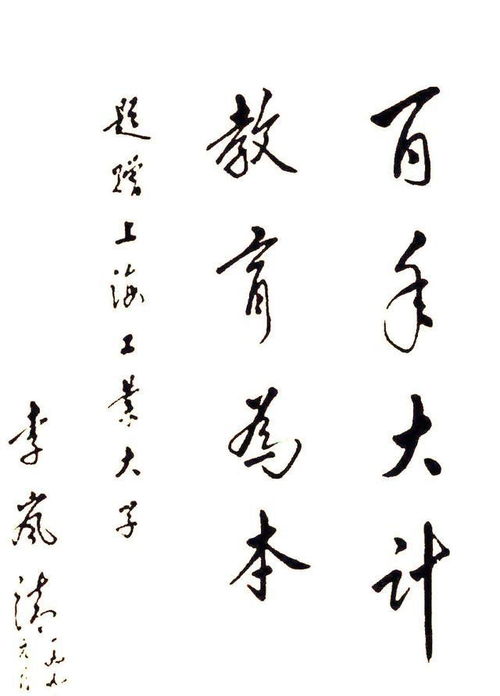 百年大计
教育為本
题赠上海工業大学
李岚清